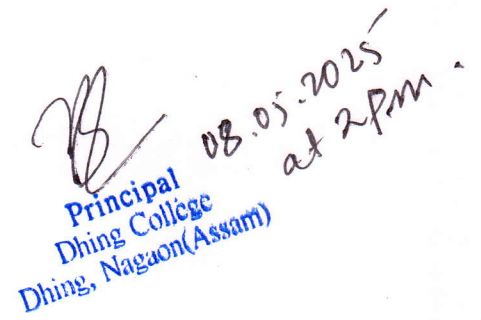 08.05.2025
at 2 pm.
Principal
Dhing College
Dhing, Nagaon(Assam)